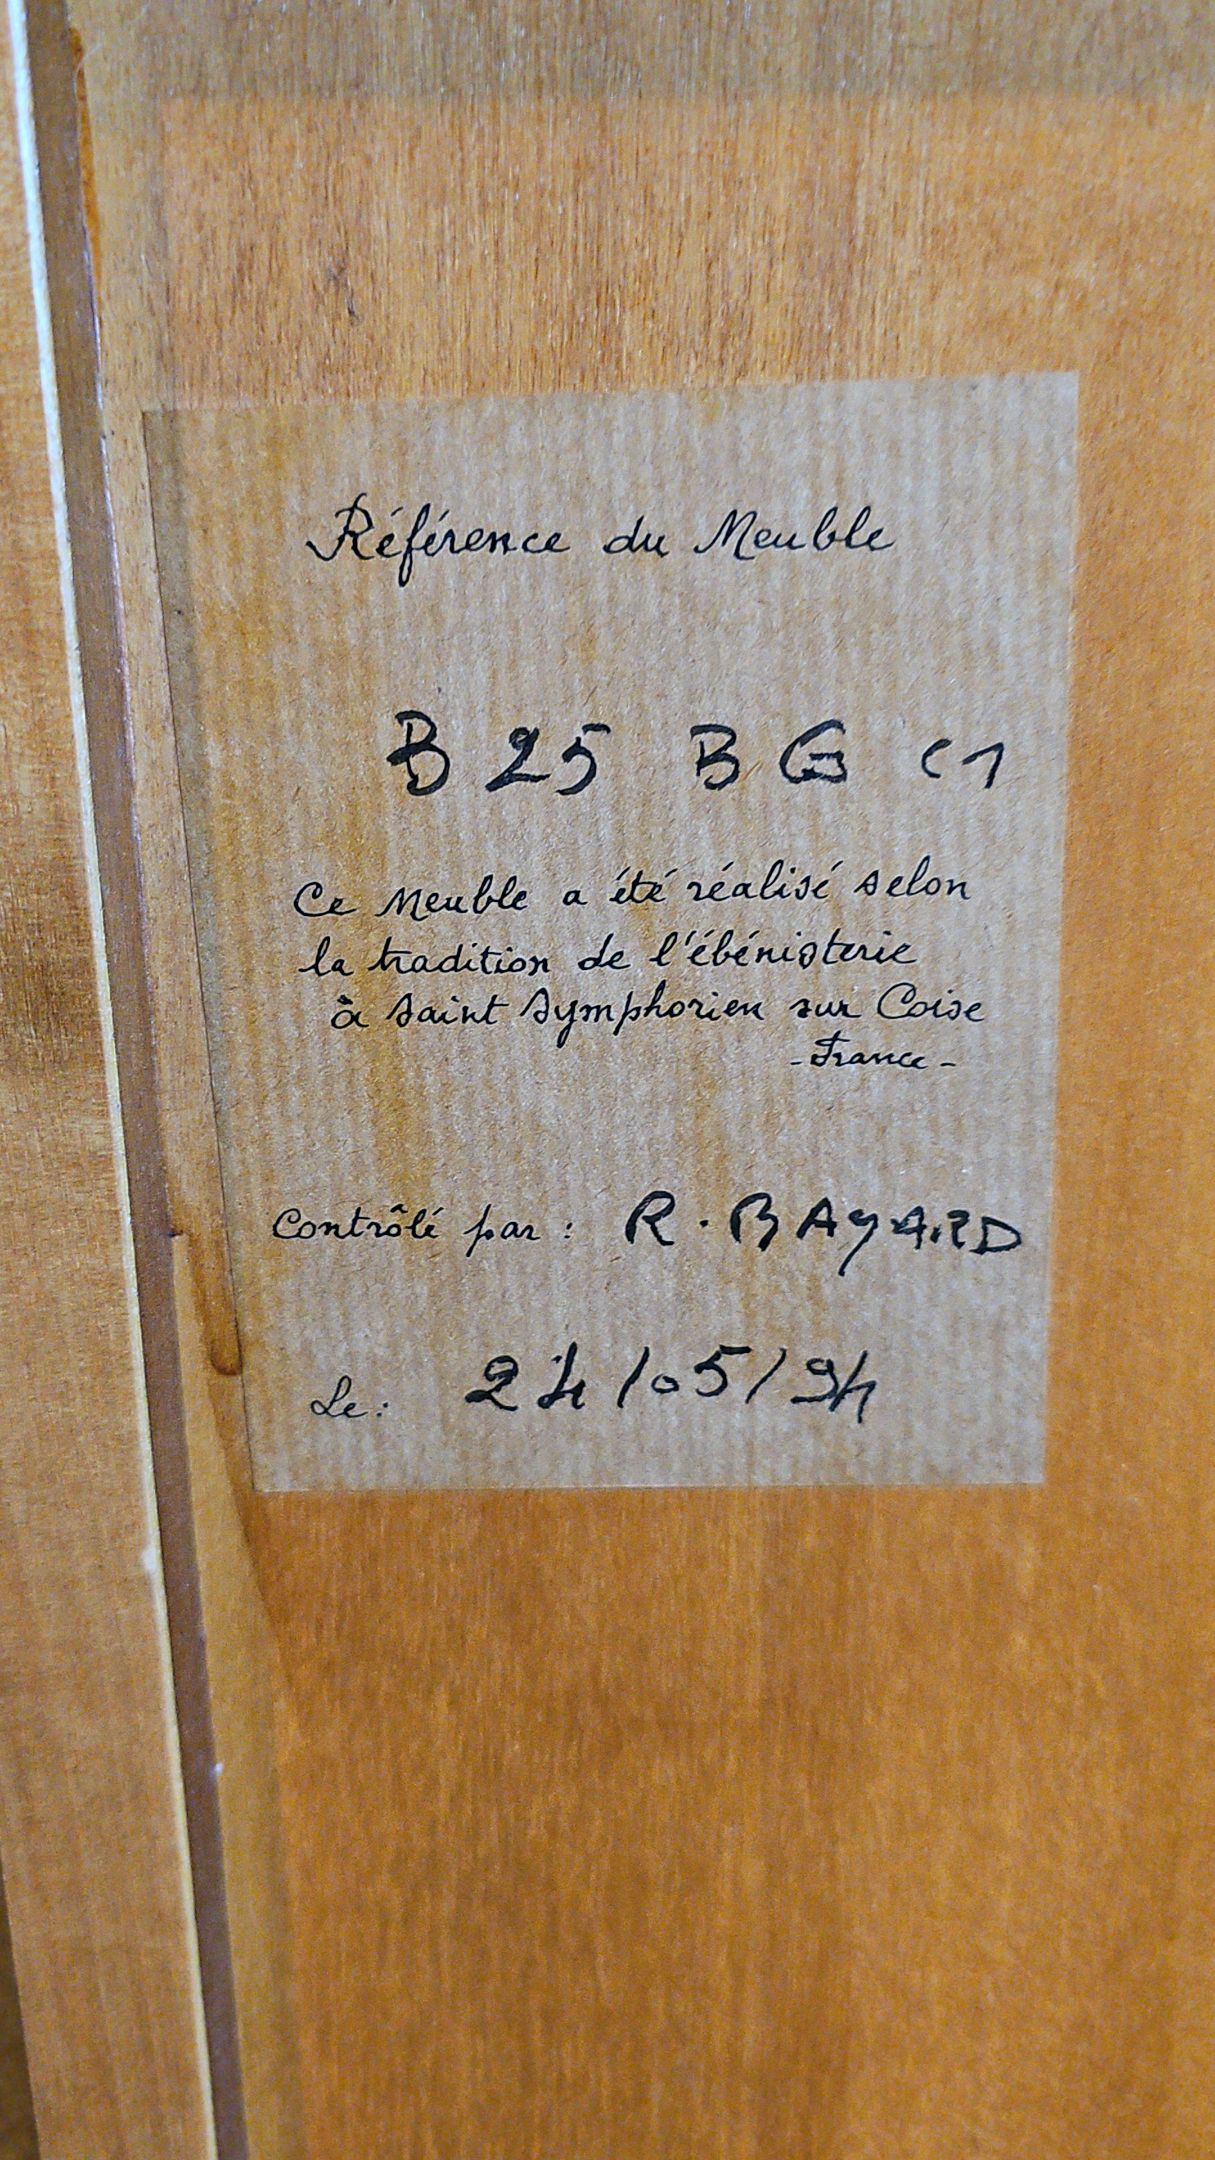 Référence du Meuble
B 25 BG C1
Ce Meuble a été réalisé selon
la tradition de l'ébénisterie
à Saint Symphorien sur Coise
- France -
Contrôlé par : R. BAYARD
Le : 24/05/94